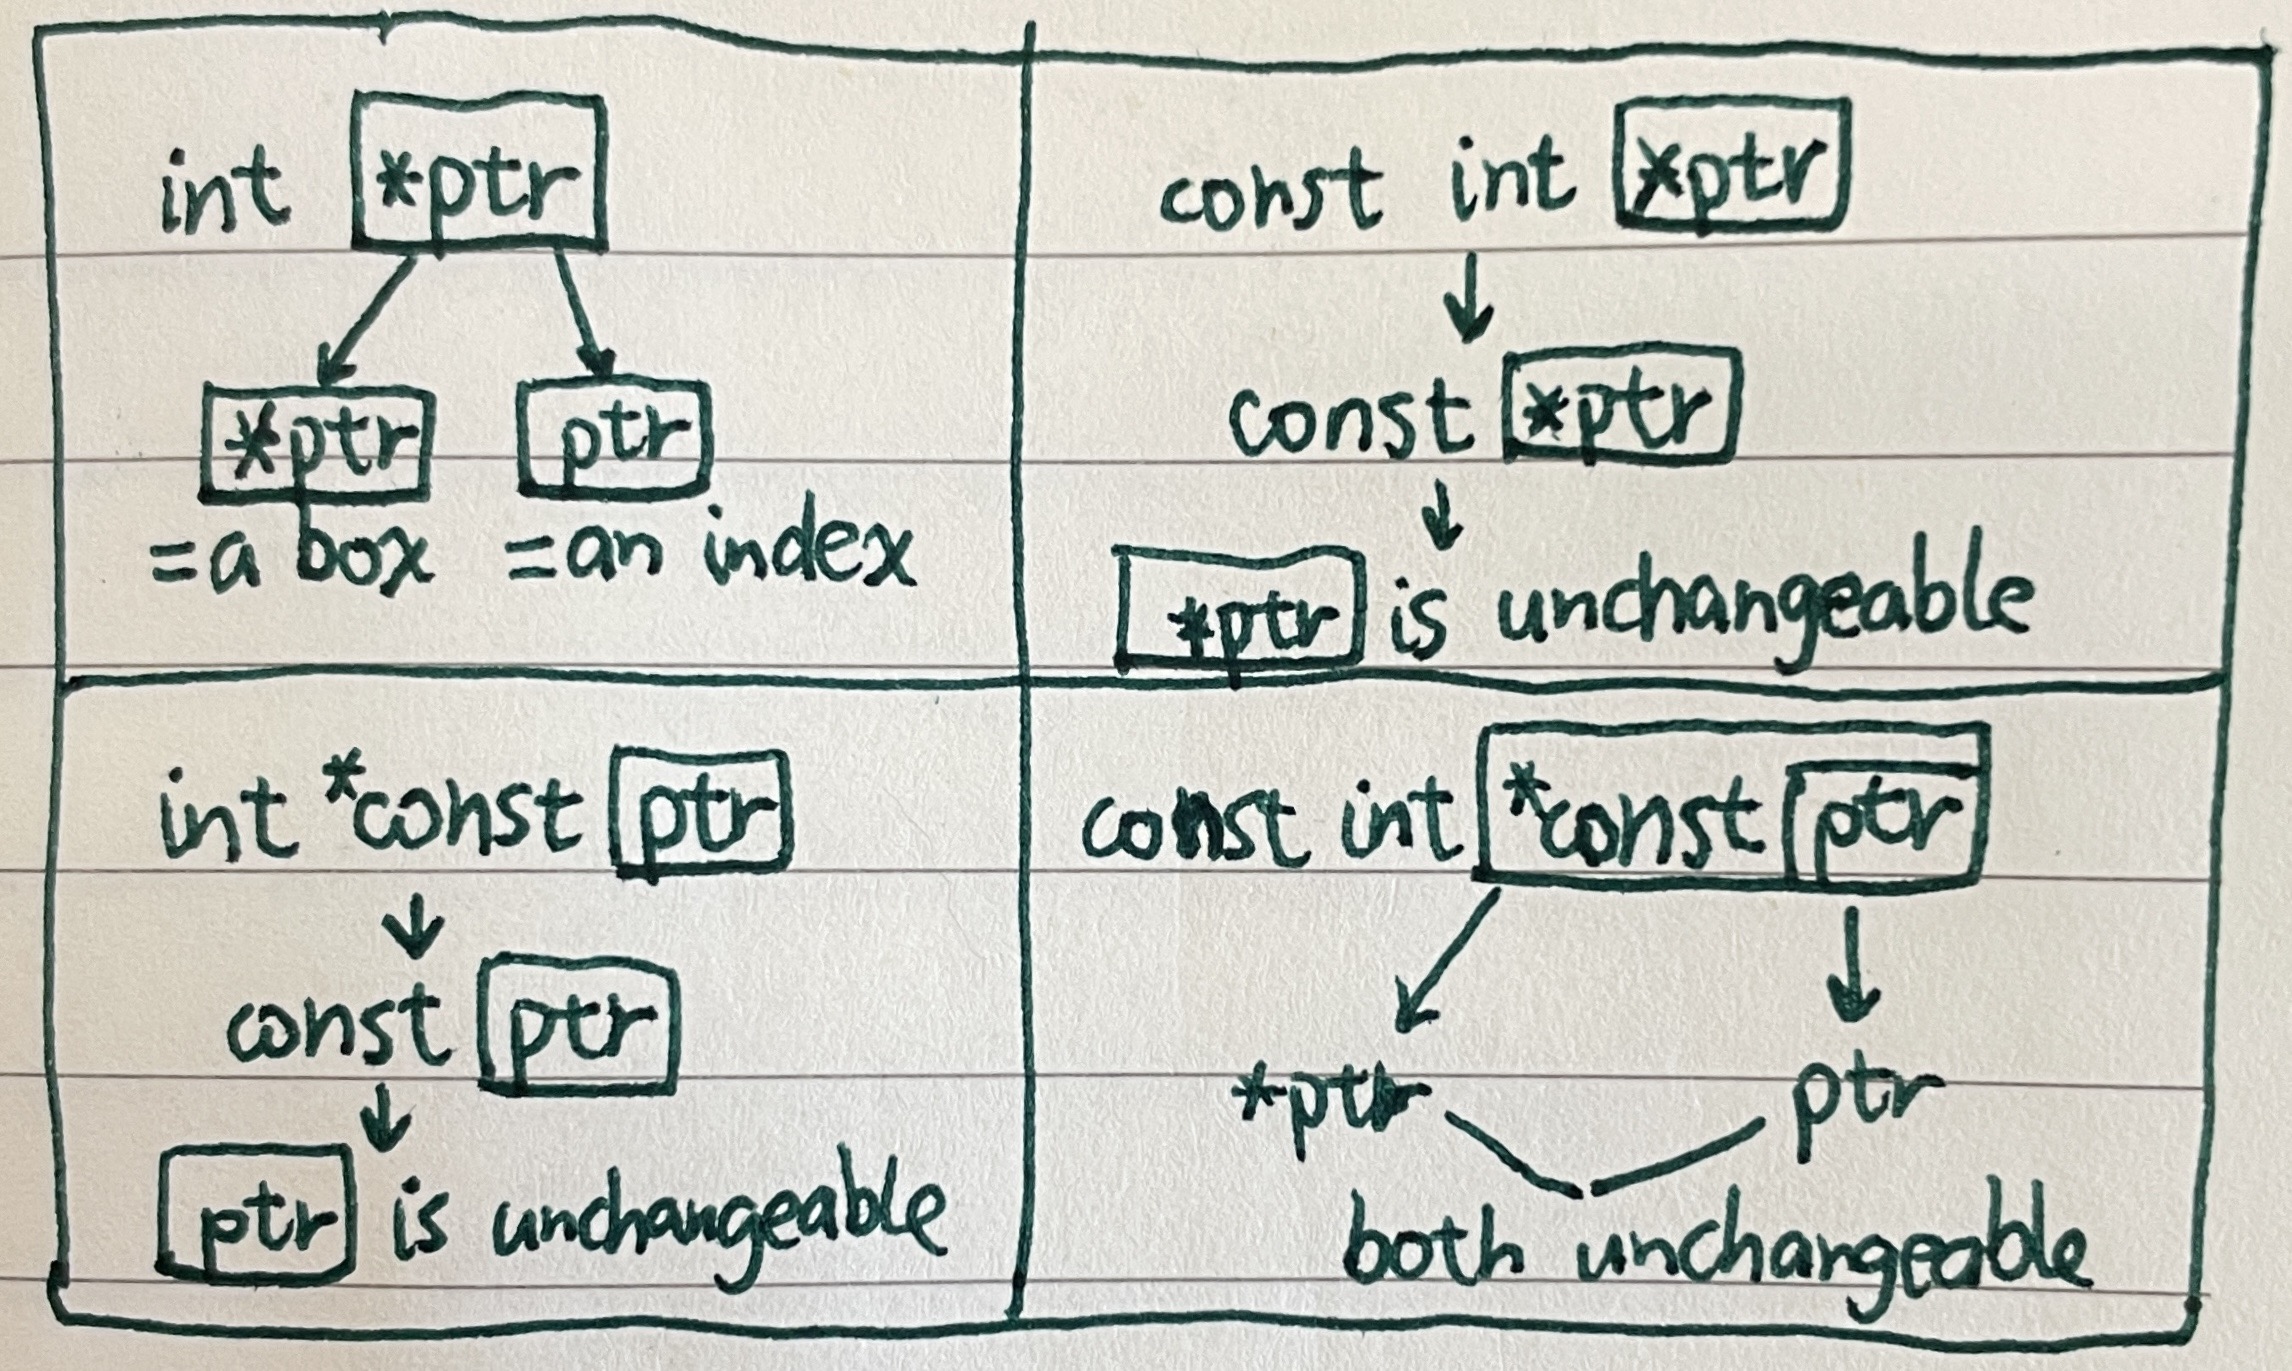 int *ptr
*ptr ptr
=a box =an index
const int *ptr
const *ptr
*ptr is unchangeable
int *const ptr
const ptr
ptr is unchangeable
const int *const ptr
*ptr ptr
both unchangeable